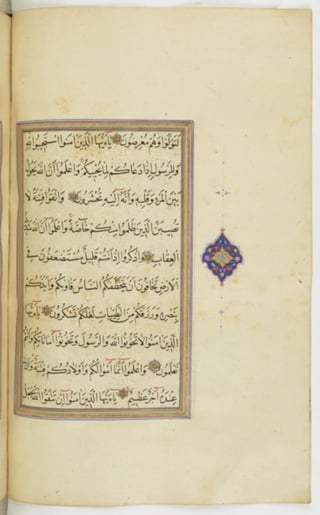 لَتَوَلَّوْا وَهُمْ مُعْرِضُونَ يَاءَيُّهَا الَّذِينَ اٰمَنُوا اسْتَجِيبُوا لِلّٰهِ
وَلِلرَّسُولِ إِذَا دَعَاكُمْ لِمَا يُحْيِيكُمْ وَاعْلَمُوا أَنَّ اللّٰهَ يَحُولُ
بَيْنَ الْمَرْءِ وَقَلْبِهِ وَأَنَّهُ إِلَيْهِ تُحْشَرُونَ وَاتَّقُوا فِتْنَةً لَا
تُصِيبَنَّ الَّذِينَ ظَلَمُوا مِنْكُمْ خَاصَّةً وَاعْلَمُوا أَنَّ اللّٰهَ شَدِيدُ
الْعِقَابِ وَاذْكُرُوا إِذْ أَنْتُمْ قَلِيلٌ مُسْتَضْعَفُونَ فِي
الْأَرْضِ تَخَافُونَ أَنْ يَتَخَطَّفَكُمُ النَّاسُ فَاٰوٰيكُمْ وَأَيَّدَكُمْ
بِنَصْرِهِ وَرَزَقَكُمْ مِنَ الطَّيِّبَاتِ لَعَلَّكُمْ تَشْكُرُونَ يَاءَيُّهَا
الَّذِينَ اٰمَنُوا لَا تَخُونُوا اللّٰهَ وَالرَّسُولَ وَتَخُونُوا أَمَانَاتِكُمْ وَأَنْتُمْ
تَعْلَمُونَ وَاعْلَمُوا أَنَّمَا أَمْوَالُكُمْ وَأَوْلَادُكُمْ فِتْنَةٌ وَأَنَّ اللّٰهَ
عِنْدَهُ أَجْرٌ عَظِيمٌ يَاءَيُّهَا الَّذِينَ اٰمَنُوا إِنْ تَتَّقُوا اللّٰهَ يَجْعَلْ